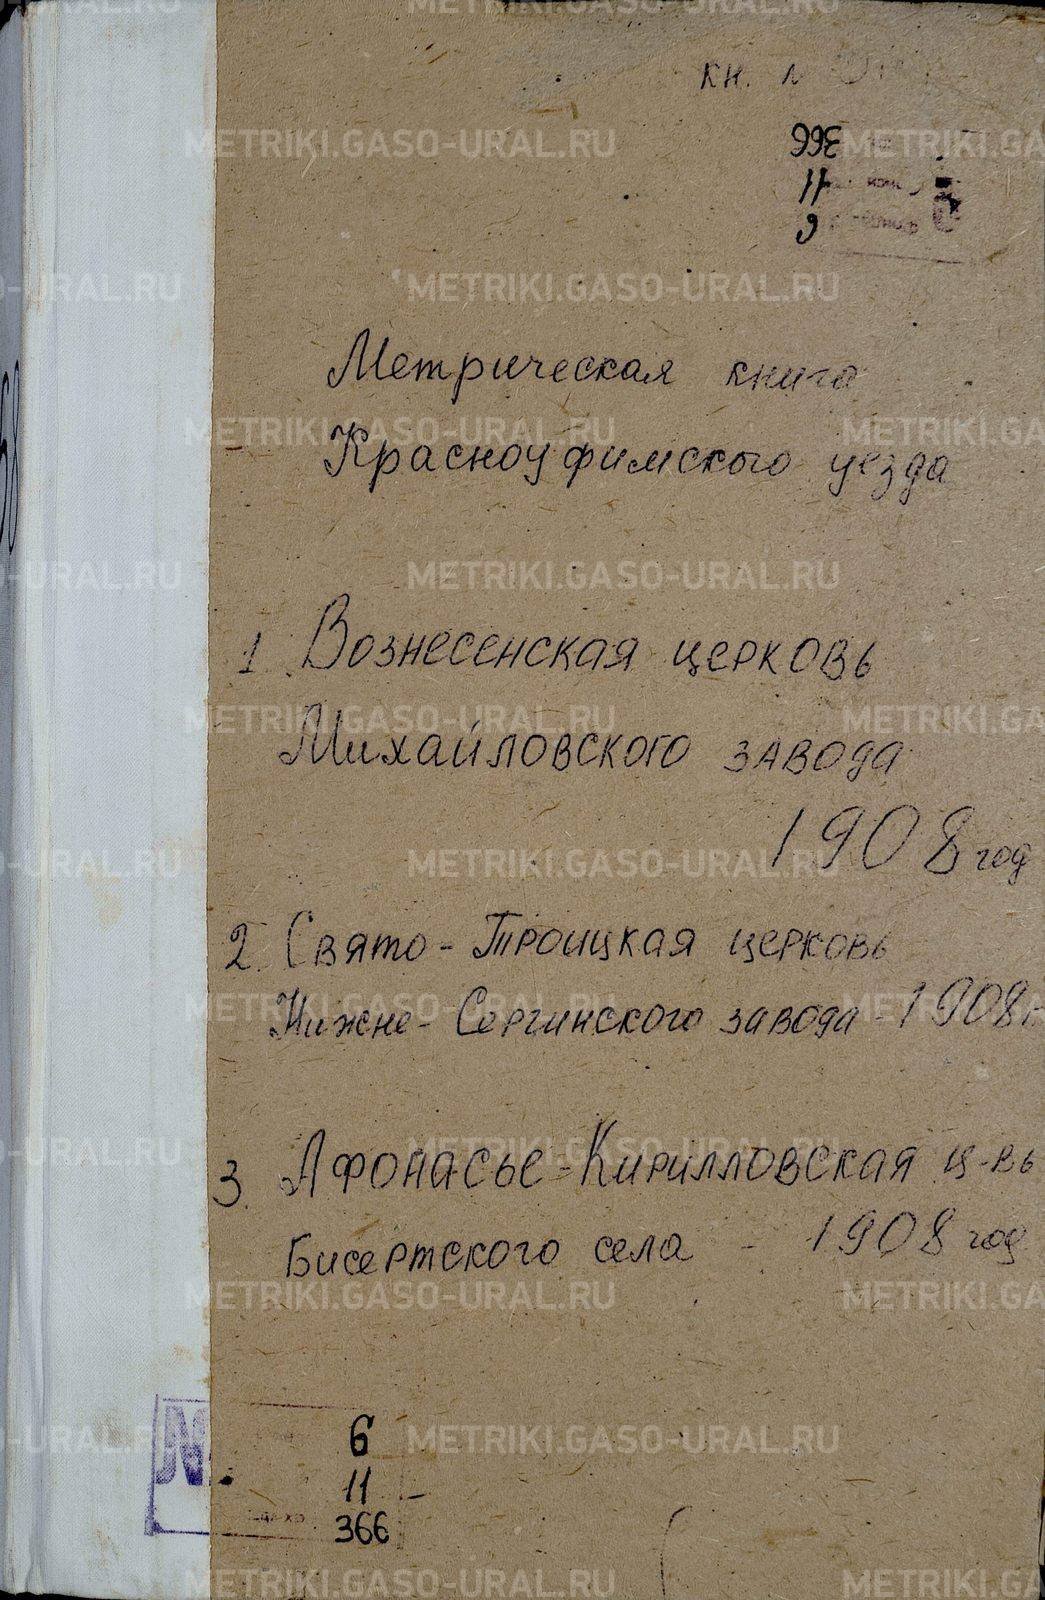 кн. №
366
11
6
Метрическая книга
Красноуфимского уезда
1. Вознесенская церковь
Михайловского завода
1908 год
2. Свято-Троицкая церковь
Нижне-Сергинского завода - 1908 г.
3. Афонасье-Кирилловская ц-вь
Бисертского села - 1908 год
6
11
366
METRIKI.GASO-URAL.RU